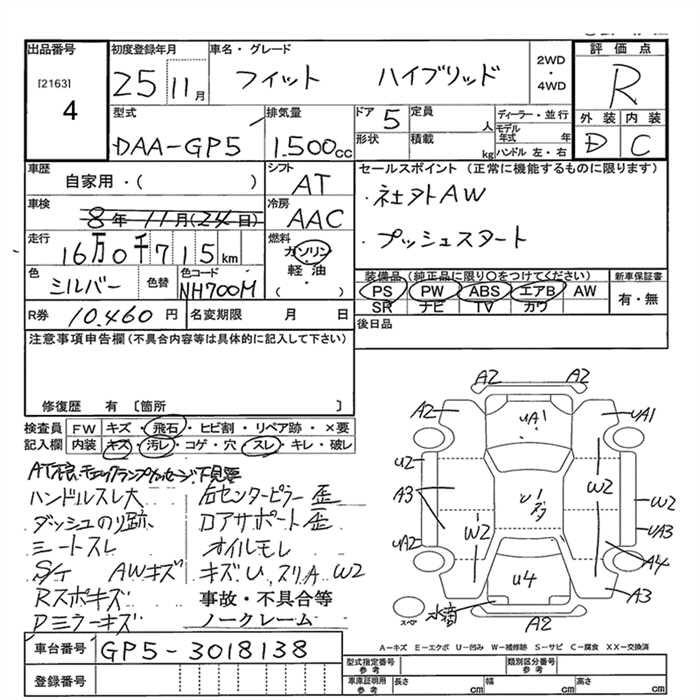 出品番号
[2163]
4
初度登録年月
25 11 月
車名・グレード
フィット ハイブリッド
2WD
・
4WD
評価点
R
外装 内装
D C
型式
DAA-GP5
排気量
1.500 cc
ドア 5
形状
定員 人
積載 kg
ディーラー・並行
モデル年式 年
ハンドル 左・右
車歴
自家用・( )
シフト
AT
セールスポイント (正常に機能するものに限ります)
・社外AW
・プッシュスタート
車検
8年 11月(24日)
冷房
AAC
走行
16万0千715 km
燃料
ガソリン
軽油
( )
色
シルバー
色替
色コード
NH700M
装備品(純正品に限り○をつけてください)
PS PW ABS エアB AW
SR ナビ TV カワ
新車保証書
有・無
R券 10,460 円
名変期限 月 日
後日品
注意事項申告欄(不具合内容等は具体的に記入して下さい)
修復歴 有 〔箇所 〕
検査員記入欄
FW キズ・飛石・ヒビ割・リペア跡・×要
内装 キズ・汚レ・コゲ・穴・スレ・キレ・破レ
AT不良・チェックランプ メッセージ
ハンドルスレ大
ダッシュのり跡
シートスレ
S/ケ AWキズ
Rスポキズ
Dミラーキズ
右センターピラー歪
ロアサポート歪
オイルモレ
キズU、スリA W2
事故・不具合等
ノークレーム
A2 A2
A2 UA1 UA1
U2
A3 U1 W2 W2
W2
UA2 UA3
A4
U4 A3
A2
スペアー
A-キズ E-エクボ U-凹み W-補修跡 S-サビ C-腐食 XX-交換済
車台番号 GP5-3018138
登録番号
型式指定番号 参考
類別区分番号 参考
車庫証明用 参考
長さ cm
幅 cm
高さ cm